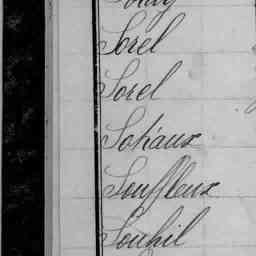 Sorel
Sorel
Sohaux
Souffleux
Souhil